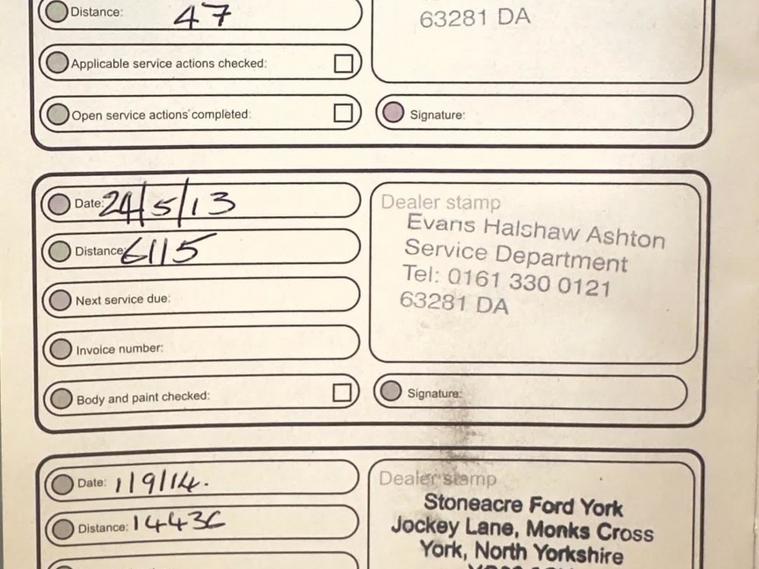 Distance: 47
63281 DA
Applicable service actions checked:
Open service actions completed:
Signature:
Date: 24/5/13
Dealer stamp
Evans Halshaw Ashton
Distance: 6115
Service Department
Tel: 0161 330 0121
Next service due:
63281 DA
Invoice number:
Body and paint checked:
Signature:
Date: 1/9/14.
Dealer stamp
Stoneacre Ford York
Distance: 1443
Jockey Lane, Monks Cross
York, North Yorkshire